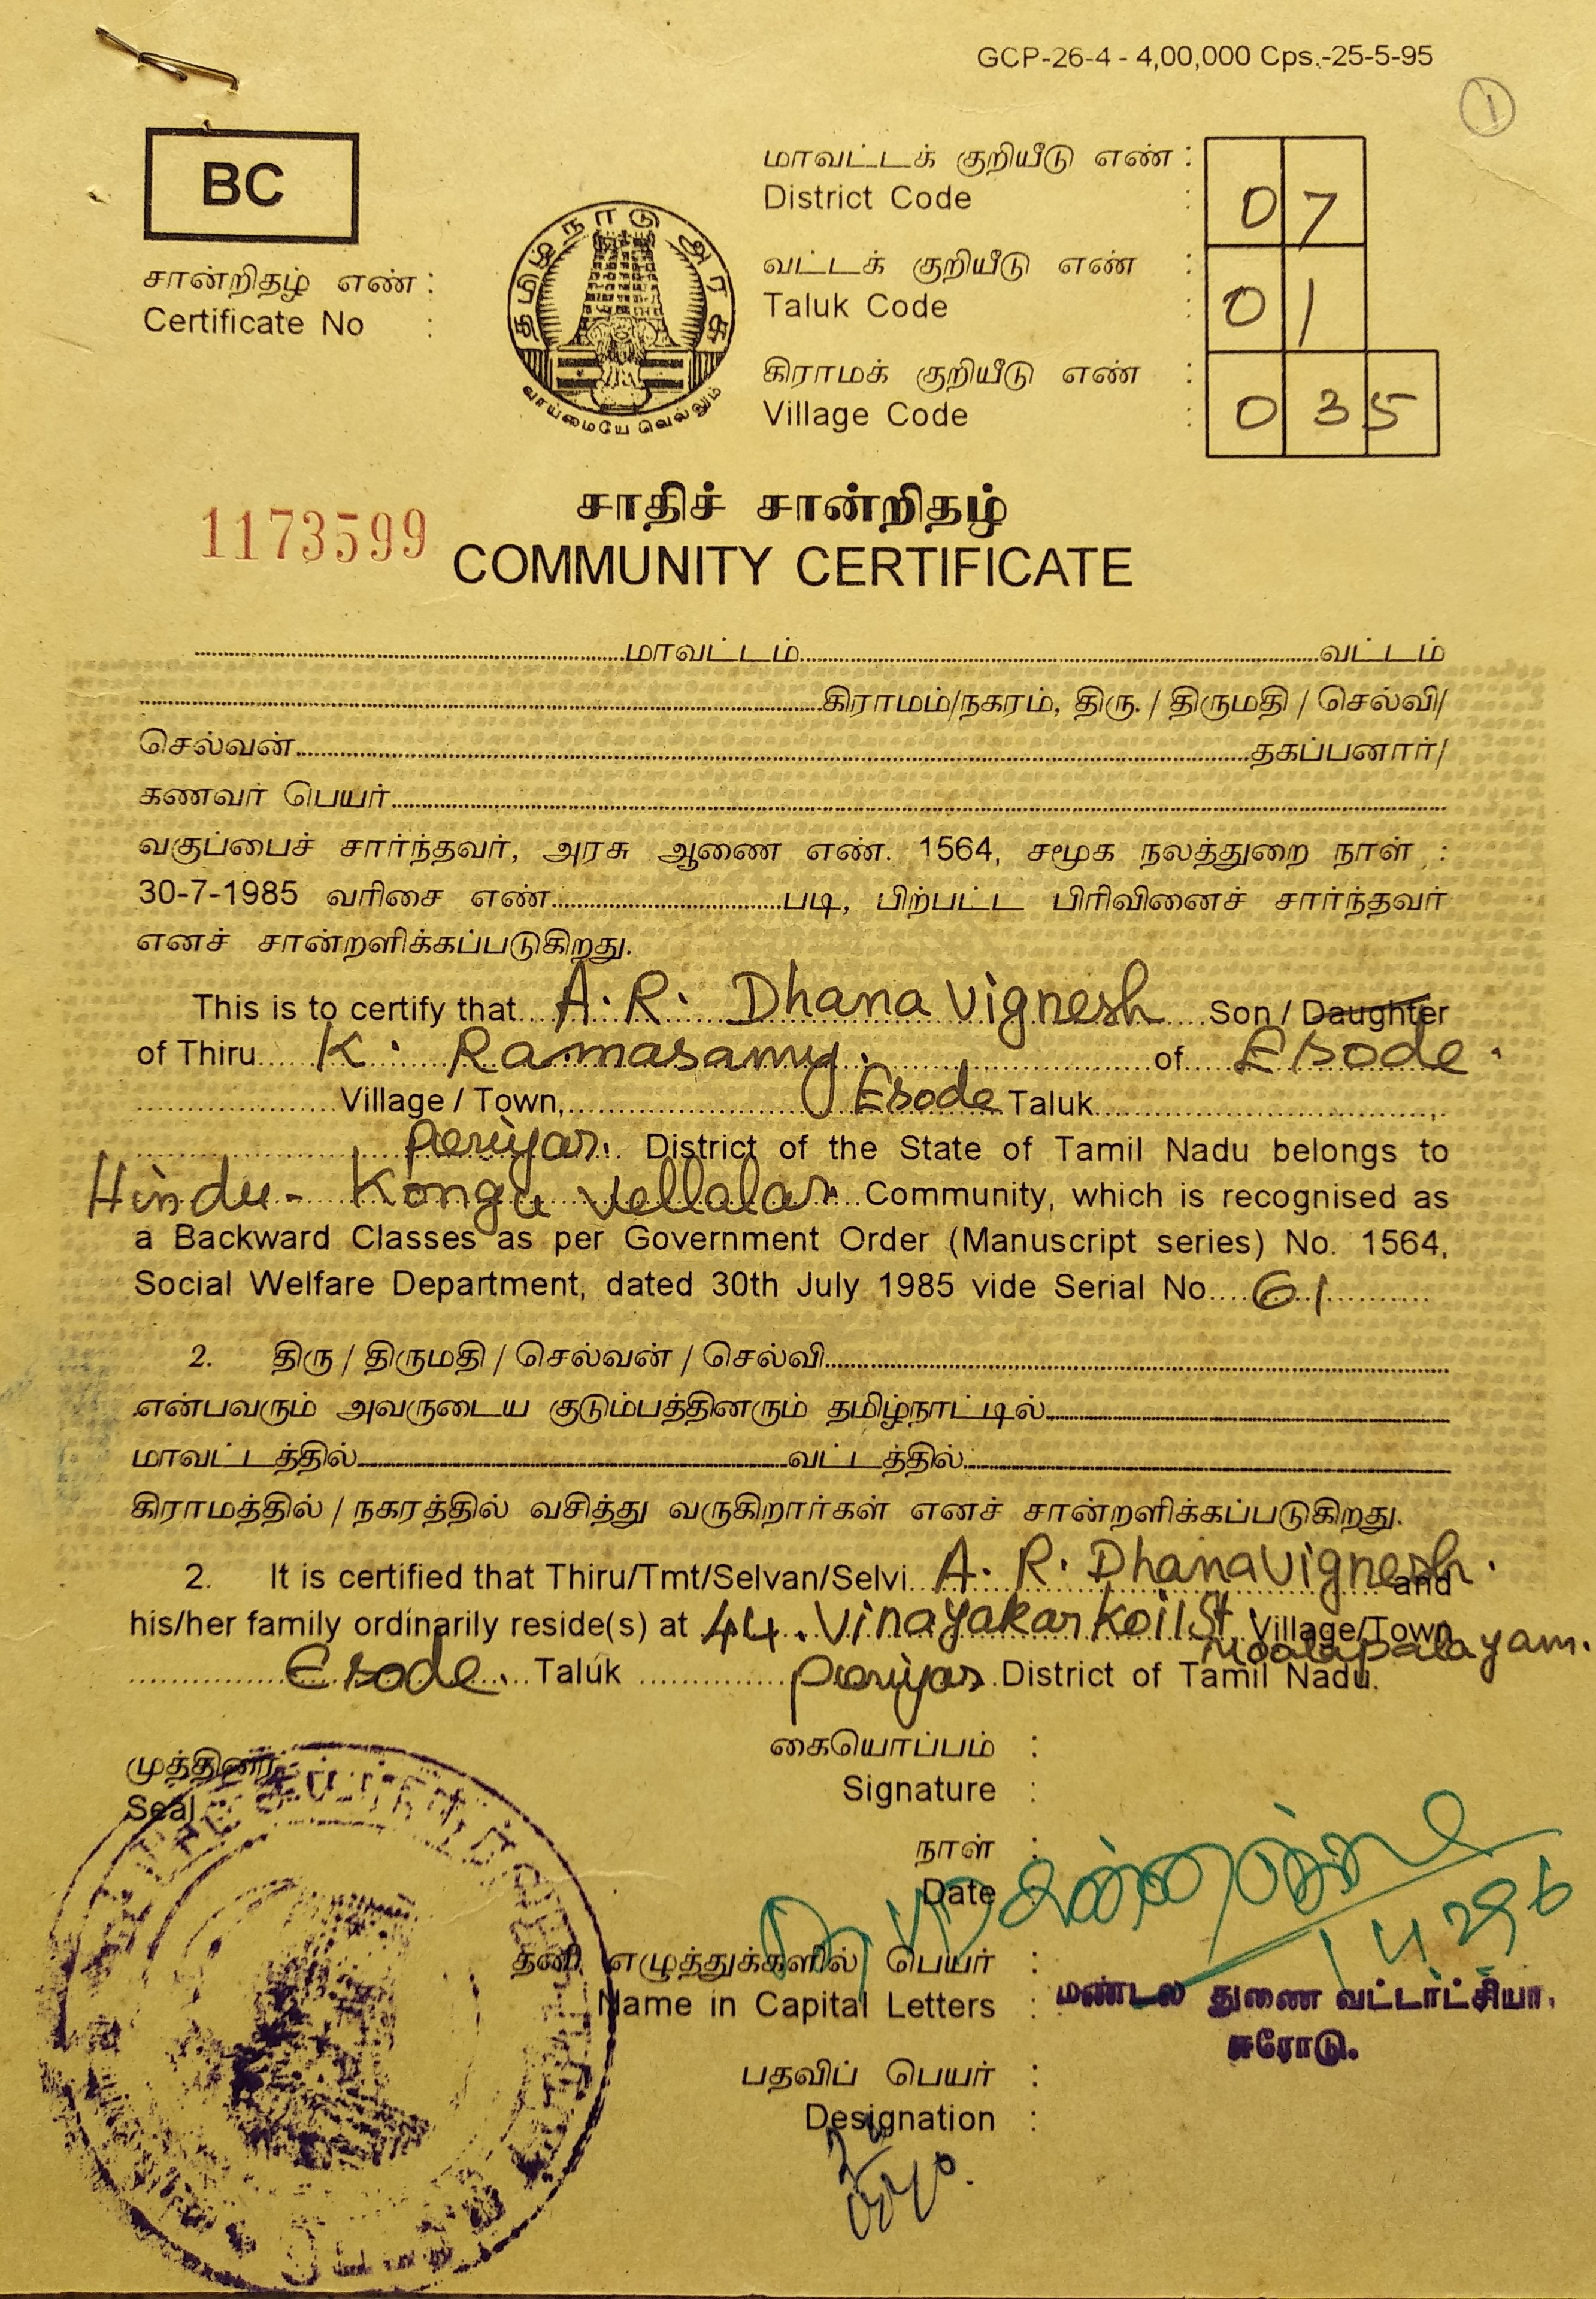 GCP-26-4 - 4,00,000 Cps.-25-5-95
1
BC
சான்றிதழ் எண் :
Certificate No :
தமிழ்நாடு அரசு
வாய்மையே வெல்லும்
மாவட்டக் குறியீடு எண் :
District Code : 07
வட்டக் குறியீடு எண் :
Taluk Code : 01
கிராமக் குறியீடு எண் :
Village Code : 035
சாதிச் சான்றிதழ்
1173599
COMMUNITY CERTIFICATE
மாவட்டம் வட்டம்
கிராமம்/நகரம், திரு. / திருமதி / செல்வி/
செல்வன் தகப்பனார்/
கணவர் பெயர்
வகுப்பைச் சார்ந்தவர், அரசு ஆணை எண். 1564, சமூக நலத்துறை நாள் :
30-7-1985 வரிசை எண் படி, பிற்பட்ட பிரிவினைச் சார்ந்தவர்
எனச் சான்றளிக்கப்படுகிறது.
This is to certify that A. R. Dhana Vignesh Son / Daughter
of Thiru K. Ramasamy. of Erode.
Village / Town, Erode Taluk
Periyar. District of the State of Tamil Nadu belongs to
Hindu - Kongu Vellalar Community, which is recognised as
a Backward Classes as per Government Order (Manuscript series) No. 1564,
Social Welfare Department, dated 30th July 1985 vide Serial No. 61
2. திரு / திருமதி / செல்வன் / செல்வி
என்பவரும் அவருடைய குடும்பத்தினரும் தமிழ்நாட்டில்
மாவட்டத்தில் வட்டத்தில்
கிராமத்தில் / நகரத்தில் வசித்து வருகிறார்கள் எனச் சான்றளிக்கப்படுகிறது.
2. It is certified that Thiru/Tmt/Selvan/Selvi A. R. Dhanavignesh. and
his/her family ordinarily reside(s) at 44. Vinayakar Koil St Village/Town
Moolapalayam.
Erode. Taluk Periyar District of Tamil Nadu.
முத்திரை
Seal
கையொப்பம் :
Signature :
நாள் :
Date
தனி எழுத்துக்களில் பெயர் :
Name in Capital Letters :
மண்டல துணை வட்டாட்சியர்,
ஈரோடு.
பதவிப் பெயர் :
Designation :